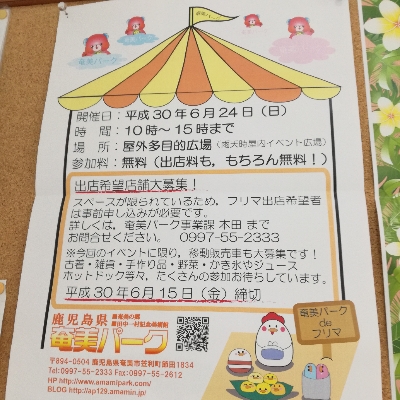 奄美パーク
奄美パーク
開催日：平成30年6月24日（日）
時　間：10時〜15時まで
場　所：屋外多目的広場（雨天時屋内イベント広場）
参加料：無料（出店料も，もちろん無料！）
出店希望店舗大募集！
スペースが限られているため，フリマ出店希望者
は事前申し込みが必要です。
詳しくは，奄美パーク事業課 本田 まで
お問合せください。　0997-55-2333
※今回のイベントに限り，移動販売車も大募集です！
古着・雑貨・手作り品・野菜・かき氷やジュース
ホットドック等々，たくさんの参加お待ちしています。
平成30年6月15日（金）締切
鹿児島県
奄美の郷
田中一村記念美術館
奄美パーク
〒894-0504 鹿児島県奄美市笠利町節田1834
Tel:0997-55-2333 Fax:0997-55-2612
HP http://www.amamipark.com/
BLOG http://ap129.amamin.jp/
奄美パーク
de
フリマ